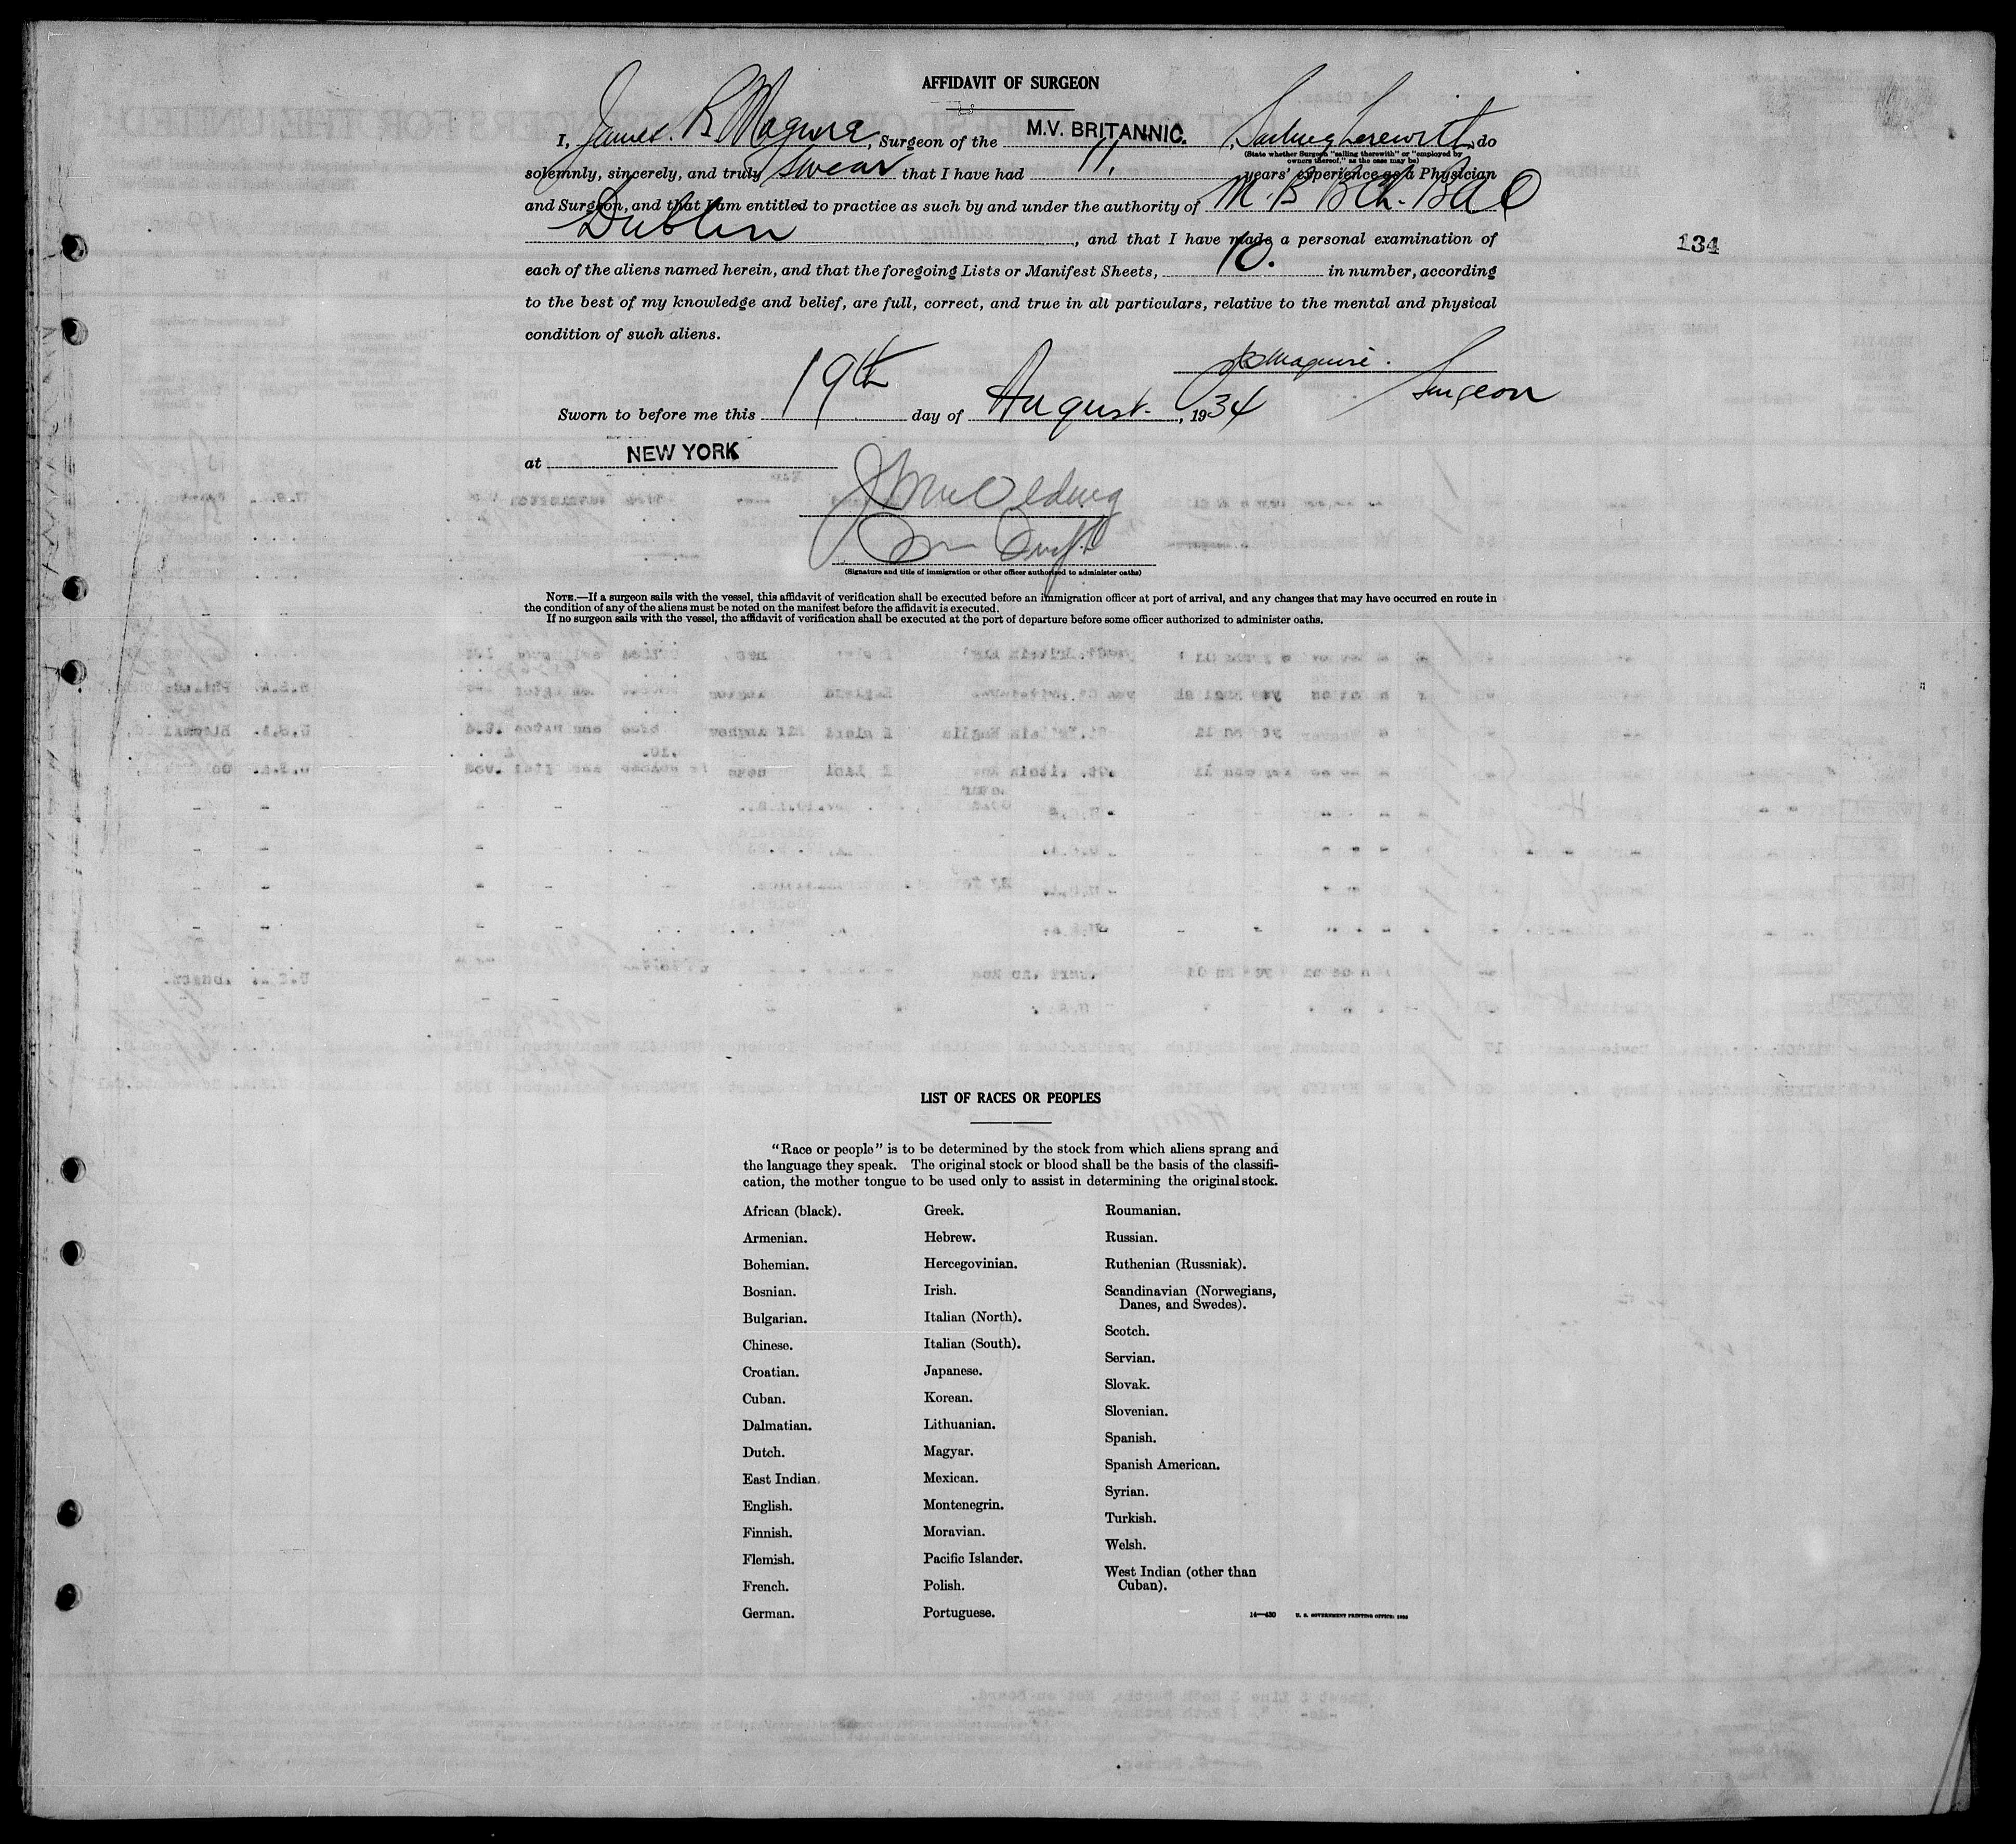 AFFIDAVIT OF SURGEON
I, James. B Maguire, Surgeon of the M.V. BRITANNIC., Sailing therewith, do
(State whether Surgeon "sailing therewith" or "employed by
owners thereof," as the case may be)
solemnly, sincerely, and truly swear that I have had 11. years' experience as a Physician
and Surgeon, and that I am entitled to practice as such by and under the authority of M. B B Ch. BAO
Dublin, and that I have made a personal examination of
134
each of the aliens named herein, and that the foregoing Lists or Manifest Sheets, 10. in number, according
to the best of my knowledge and belief, are full, correct, and true in all particulars, relative to the mental and physical
condition of such aliens.
JBMaguire.
Surgeon
Sworn to before me this 19th day of August., 1934
at NEW YORK
(Signature and title of immigration or other officer authorized to administer oaths)
NOTE.—If a surgeon sails with the vessel, this affidavit of verification shall be executed before an immigration officer at port of arrival, and any changes that may have occurred en route in
the condition of any of the aliens must be noted on the manifest before the affidavit is executed.
If no surgeon sails with the vessel, the affidavit of verification shall be executed at the port of departure before some officer authorized to administer oaths.
LIST OF RACES OR PEOPLES
"Race or people" is to be determined by the stock from which aliens sprang and
the language they speak. The original stock or blood shall be the basis of the classifi-
cation, the mother tongue to be used only to assist in determining the original stock.
African (black).
Armenian.
Bohemian.
Bosnian.
Bulgarian.
Chinese.
Croatian.
Cuban.
Dalmatian.
Dutch.
East Indian.
English.
Finnish.
Flemish.
French.
German.
Greek.
Hebrew.
Hercegovinian.
Irish.
Italian (North).
Italian (South).
Japanese.
Korean.
Lithuanian.
Magyar.
Mexican.
Montenegrin.
Moravian.
Pacific Islander.
Polish.
Portuguese.
Roumanian.
Russian.
Ruthenian (Russniak).
Scandinavian (Norwegians,
Danes, and Swedes).
Scotch.
Servian.
Slovak.
Slovenian.
Spanish.
Spanish American.
Syrian.
Turkish.
Welsh.
West Indian (other than
Cuban).
14—430 U. S. GOVERNMENT PRINTING OFFICE: